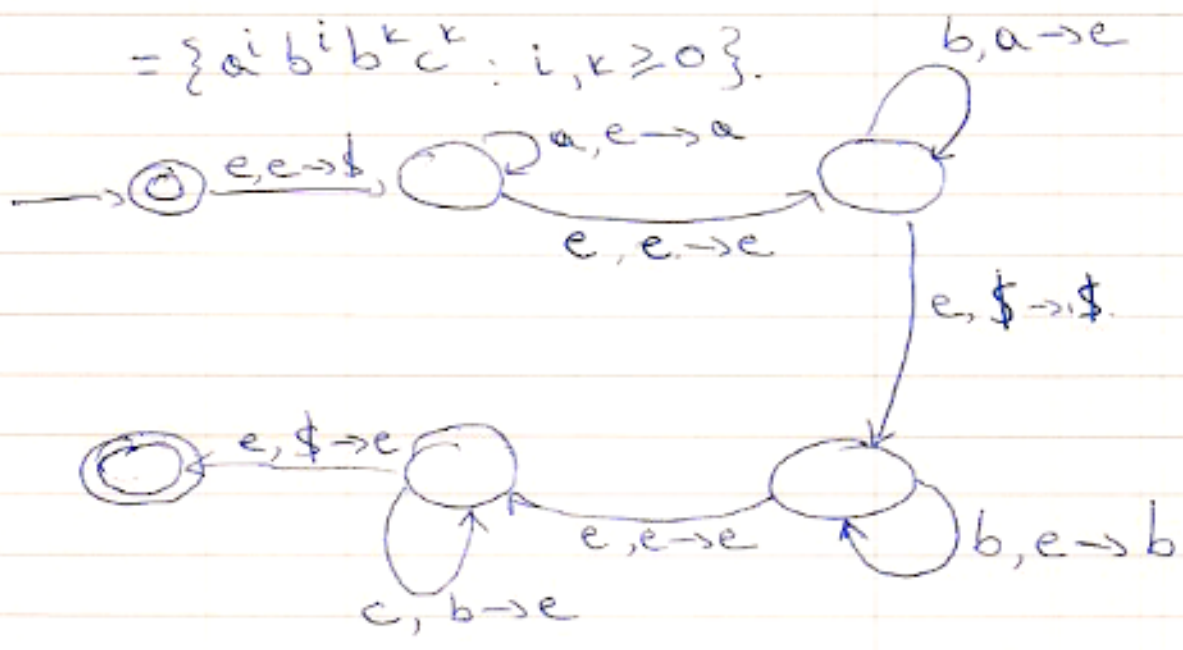 = {aⁱ bⁱ bᵏ cᵏ : i, k ≥ 0}.
b, a → e
e, e → $
a, e → a
e, e → e
e, $ → $.
e, $ → e
e, e → e
b, e → b
c, b → e